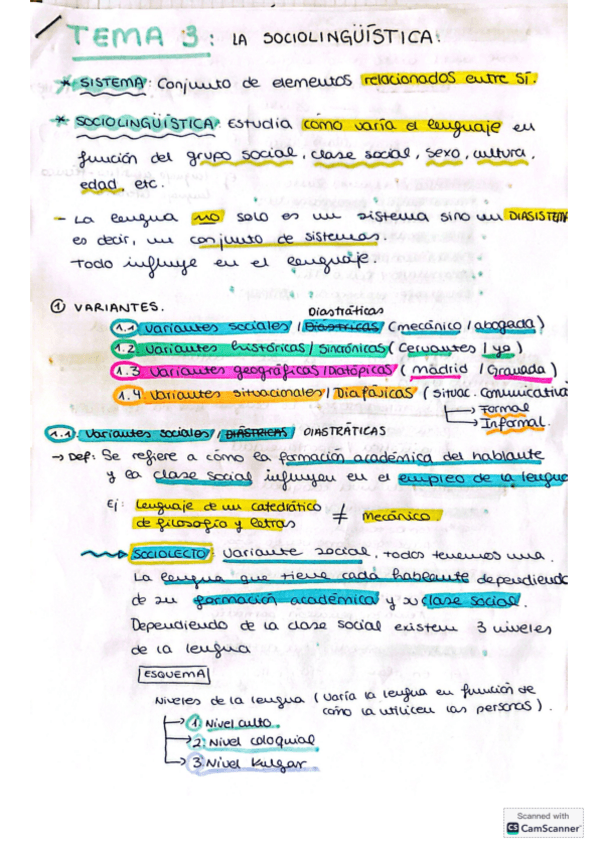 TEMA 3: LA SOCIOLINGÜÍSTICA:
* SISTEMA: Conjunto de elementos relacionados entre sí.
* SOCIOLINGÜÍSTICA: Estudia como varía el lenguaje en
función del grupo social, clase social, sexo, cultura,
edad, etc.
- La lengua no solo es un sistema sino un DIASISTEMA
es decir, un conjunto de sistemas.
Todo influye en el lenguaje.
① VARIANTES.
Diastráticas
1.1 Variantes sociales / Diástricas (mecánico / abogada)
1.2. Variantes históricas / Sincrónicas (Cervantes / yo)
1.3 Variantes geográficas / Diatópicas (madrid / Granada)
1.4. Variantes situacionales / Diafásicas (situac. Comunicativa
→ Formal
→ Informal.
1.1. Variantes sociales / DIÁSTRICAS DIASTRÁTICAS
→ Def: Se refiere a cómo la formación académica del hablante
y la clase social influyen en el empleo de la lengua
Ej: Lenguaje de un catedrático ≠ mecánico
de filosofía y letras
SOCIOLECTO: Variante social, todos tenemos una.
La lengua que tiene cada hablante dependiendo
de su formación académica y su clase social.
Dependiendo de la clase social existen 3 niveles
de la lengua
ESQUEMA
Niveles de la lengua (varía la lengua en función de
cómo la utilicen las personas).
→ 1. Nivel culto.
→ 2. Nivel coloquial
→ 3 Nivel Vulgar
Scanned with
CS CamScanner